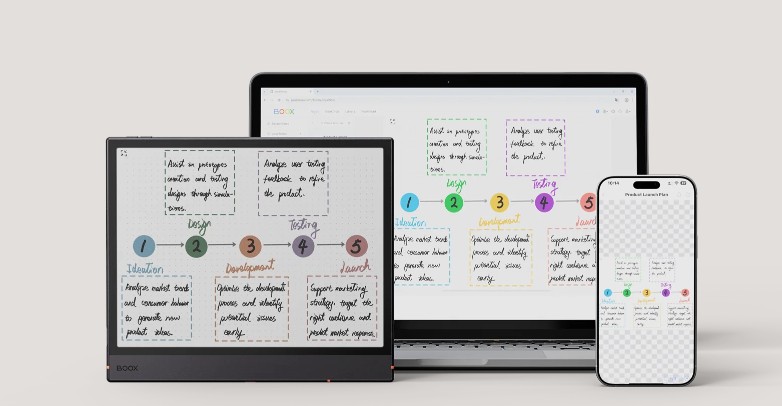 Assist in prototypes
creation and testing
designs through simula-
tions.
Analyze user testing
feedback to refine
the product.
Design
Testing
1
2
3
4
5
Ideation
Development
Launch
Analyze market trends
and consumer behavior
to generate new
product ideas.
Optimize the development
process and identify
potential issues
early.
Support marketing
strategy, target the
right audience and
predict market response.
BOOX
BOOX
Assist in prototypes
creation and testing
designs through simula-
tions.
Analyze user testing
feedback to refine
the product.
Design
Testing
1
2
3
4
5
Ideation
Development
Launch
Analyze market trends
and consumer behavior
to generate new
product ideas.
Optimize the development
process and identify
potential issues
early.
Support marketing
strategy, target the
right audience and
predict market
10:14
Product Launch Plan
1
2
3
4
5